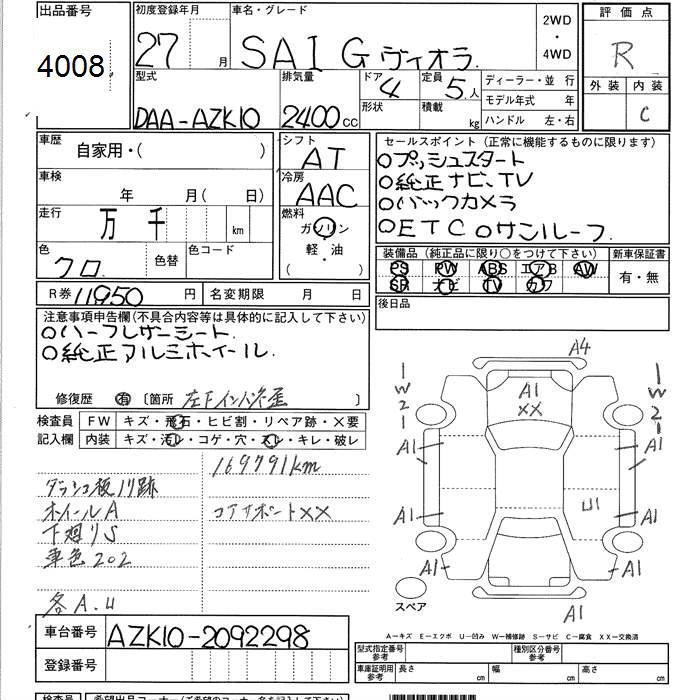 出品番号
4008
初度登録年月
27 月
車名・グレード
SAI G ヴィオラ
2WD
・
4WD
評価点
R
外装 内装
C
型式
DAA-AZK10
排気量
2400 CC
ドア
4
形状
定員
5人
積載
kg
ディーラー・並 行
モデル年式 年
ハンドル 左・右
車歴
自家用・( )
車検
年 月( 日)
走行
万 千 km
色
クロ
色替
色コード
シフト
AT
冷房
AAC
燃料
ガソリン
軽・油
( )
セールスポイント (正常に機能するものに限ります)
○プッシュスタート
○純正ナビ、TV
○バックカメラ
○ETC ○サンルーフ
装備品 (純正品に限り○をつけて下さい)
PS PW ABS エアB AW
SR ナビ TV カワ
新車保証書
有・無
後日品
R券 11950 円
名変期限 月 日
注意事項申告欄(不具合内容等は具体的に記入して下さい)
○ハーフレザーシート
○純正アルミホイール
修復歴 有 〔箇所 〕
検査員
記入欄
FW キズ・飛石・ヒビ割・リペア跡・X要
内装 キズ・汚レ・コゲ・穴・スレ・キレ・破レ
169791km
ホイールA コアサポートXX
下廻りS
車色202
各A.U
車台番号 AZK10-2092298
登録番号
A4
A1
XX
1
W
2
1
W
2
A1
A1
A1
A1
U1
A1
A1
A1
スペア
A1
A-キズ E-エクボ U-凹み W-補修跡 S-サビ C-腐食 XX-交換済
型式指定番号
参考
種別区分番号
参考
車庫証明用
参考
長さ cm 幅 cm 高さ cm